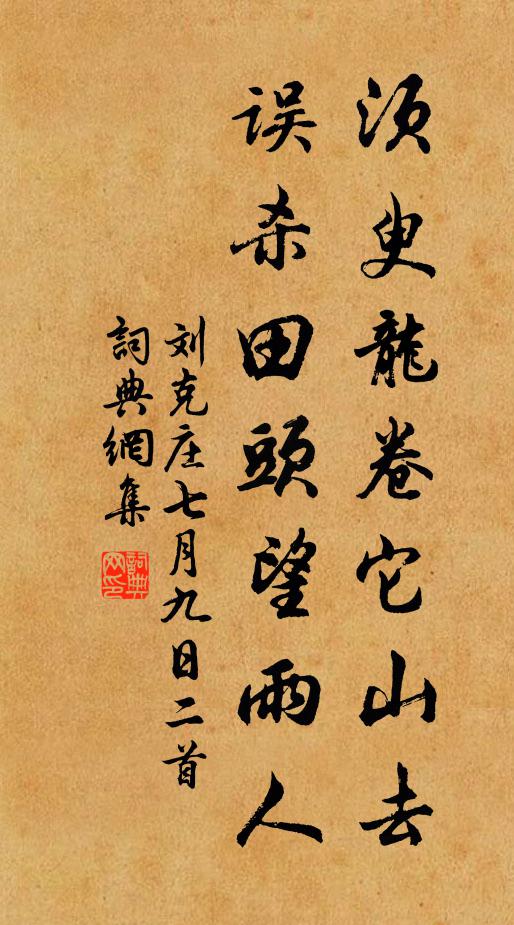 须臾龍卷它山去
误杀田頭望雨人
刘克庄七月九日二首
詞典網集
詞典网印